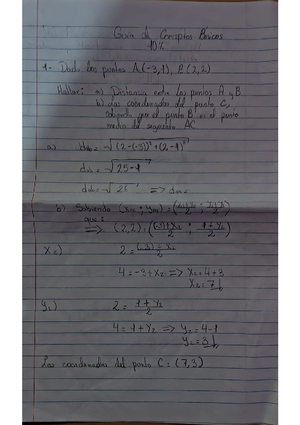 Guía de Conceptos Básicos
10%
1- Dado los puntos A(-3,1), B(2,2)
Hallar: a) Distancia entre los puntos A y B
b) Las coordenadas del punto C,
sabiendo que el punto B es el punto
medio del segmento AC
a) dAB = √(2-(-3))²+(2-1)²
dAB = √25-1
dAB = √25 => dAB=
b) Sabiendo (xm ; ym) = (x1+x2/2 ; y1+y2/2)
que:
=> (2,2) = ((-3)+x2/2 ; 1+y2/2)
x2) 2 = (-3)+x2/2
4 = -3+x2 => x2 = 4+3
x2 = 7
y2) 2 = 1+y2/2
4 = 1+y2 => y2 = 4-1
y2 = 3
Las coordenadas del punto C = (7,3)